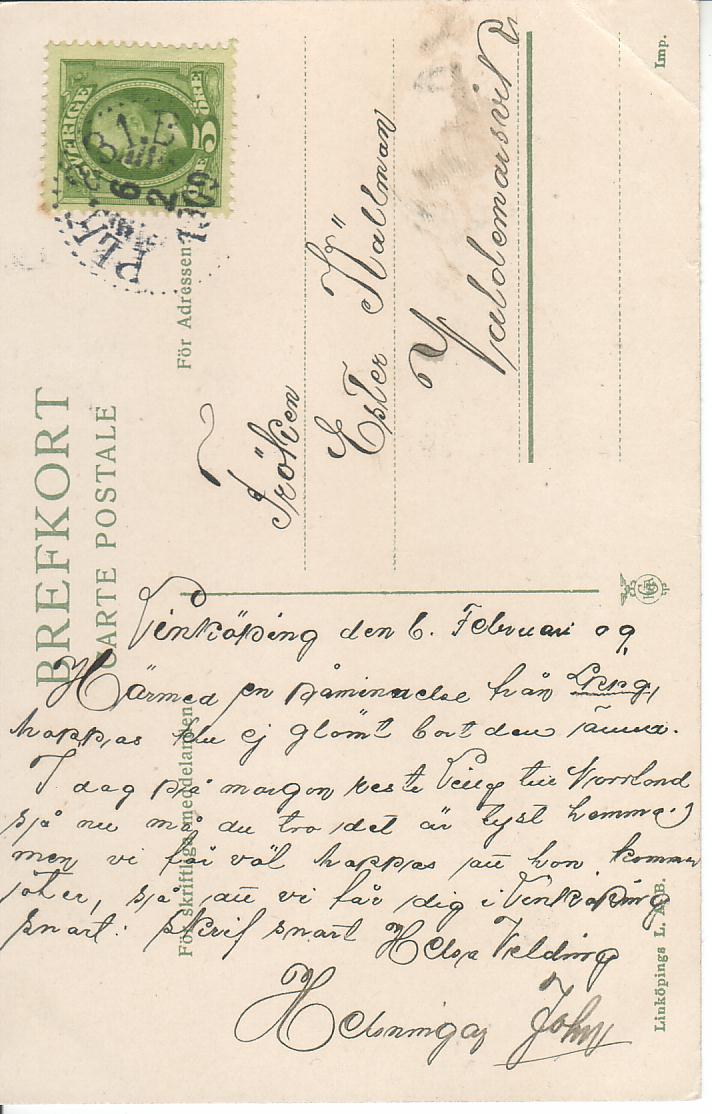 BREFKORT
CARTE POSTALE
För Adressen:
För skriftliga meddelanden:
SVERIGE
5 ÖRE
PLK
6 2
1909
Fröken
Ester Källman
Valdemarsvik
Linköping den 6. Februari 09
Härmed en påminnelse från Lkpg,
hoppas du ej glömt bort den ännu.
I dag på morgon reste till Norrland
så nu må du tro det är tyst hemma.
men vi får väl hoppas att hon kommer
åter, så att vi får dig i Linköping
snart. Skrif snart Helsa
Helsningar John
Linköpings L. A. B.
Imp.